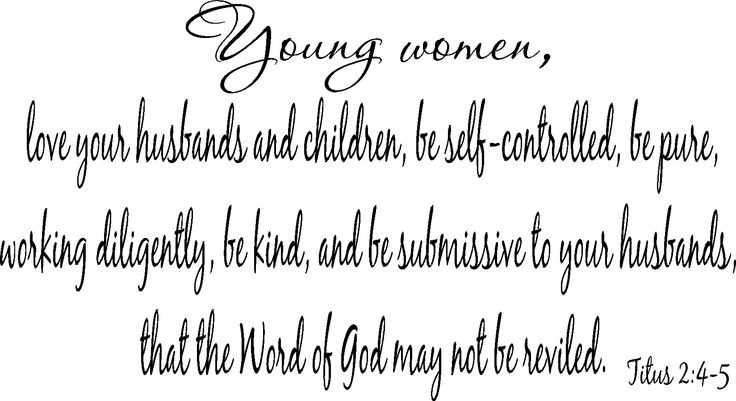 Young women,
love your husbands and children, be self-controlled, be pure,
working diligently, be kind, and be submissive to your husbands,
that the Word of God may not be reviled. Titus 2:4-5